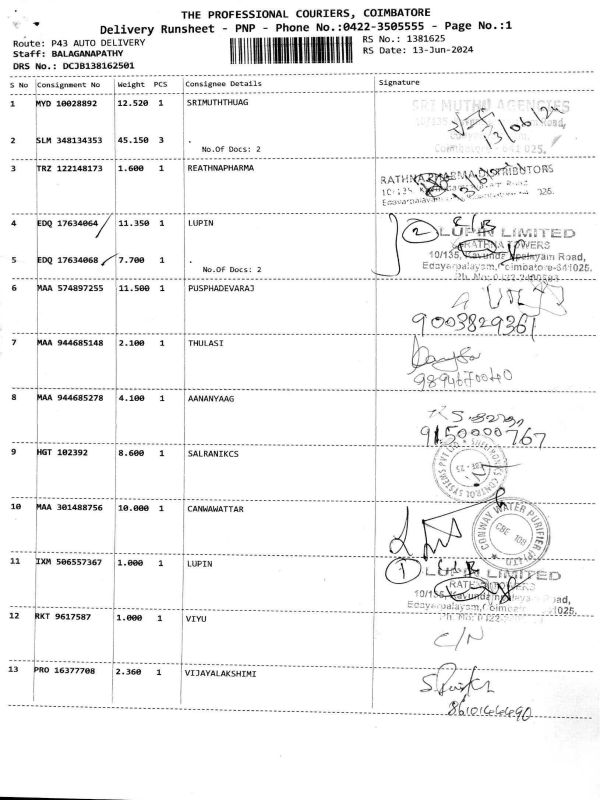 THE PROFESSIONAL COURIERS, COIMBATORE
Delivery Runsheet - PNP - Phone No.:0422-3505555 - Page No.:1
Route: P43 AUTO DELIVERY
RS No.: 1381625
Staff: BALAGANAPATHY
RS Date: 13-Jun-2024
DRS No.: DCJB138162501
S No Consignment No Weight PCS Consignee Details Signature
1 MYD 10028892 12.520 1 SRIMUTHTHUAG
SRI MUTHU AGENCIES
13/06/24
2 SLM 348134353 45.150 3 .
No.Of Docs: 2
Coimbatore - 641 025.
3 TRZ 122148173 1.600 1 REATHNAPHARMA
RATHNA PHARMA DISTRIBUTORS
4 EDQ 17634064 11.350 1 LUPIN
2
LUPIN LIMITED
RATHNA TOWERS
10/135, Kavundampalayam Road,
5 EDQ 17634068 7.700 1 .
No.Of Docs: 2
Edayarpalayam, Coimbatore-641025.
6 MAA 574897255 11.500 1 PUSPHADEVARAJ
9003829361
7 MAA 944685148 2.100 1 THULASI
9894670040
8 MAA 944685278 4.100 1 AANANYAAG
9150000767
9 HGT 102392 8.600 1 SALRANIKCS
10 MAA 301488756 10.000 1 CANWAWATTAR
CONWAY WATER PURIFIER (P) LTD
CBE 108
11 IXM 506557367 1.000 1 LUPIN
1
LUPIN LIMITED
12 RKT 9617587 1.000 1 VIYU
C/N
13 PRO 16377708 2.360 1 VIJAYALAKSHIMI
8610144490